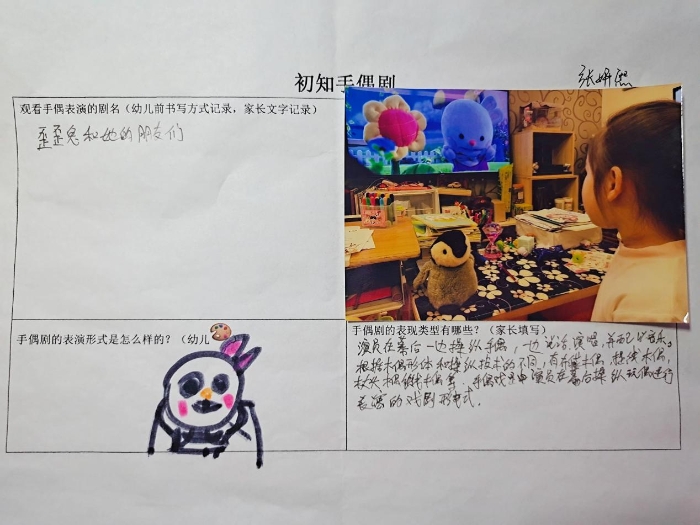 初知手偶剧
张妍熙
观看手偶表演的剧名（幼儿前书写方式记录，家长文字记录）
歪歪兔和她的朋友们
手偶剧的表演形式是怎么样的？（幼儿
手偶剧的表现类型有哪些？（家长填写）
演员在幕后一边操纵手偶，一边说话演唱，并配以音乐。
根据木偶形体和操纵技术的不同，有布袋木偶，提线木偶，
杖头木偶，铁线木偶等，手偶戏是由演员在幕后操纵玩偶进行
表演的戏剧形式。